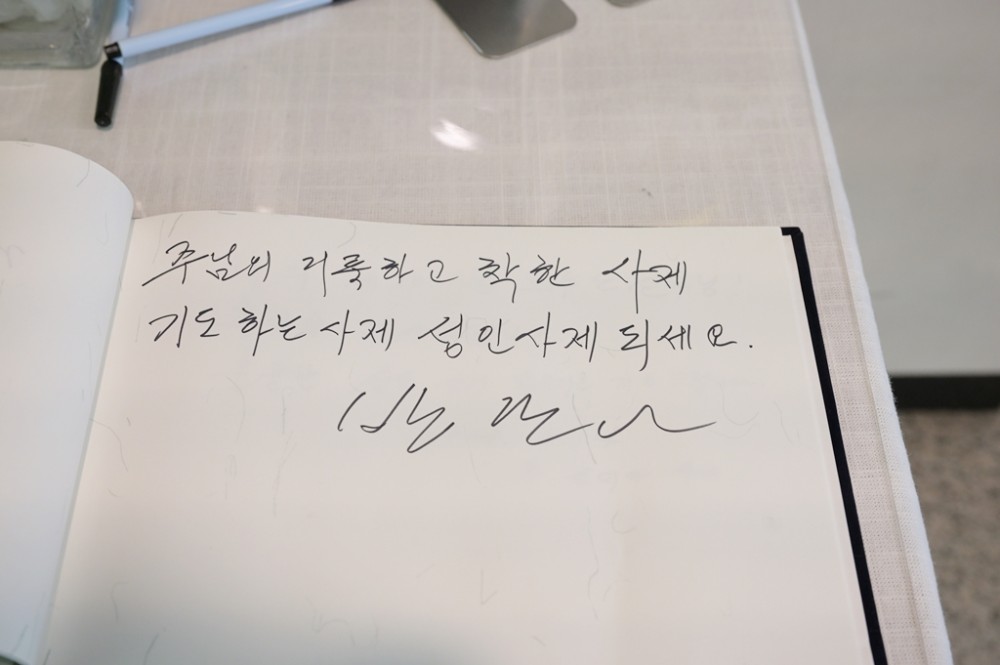 주님의 거룩하고 착한 사제
기도하는 사제 성인사제 되세요.